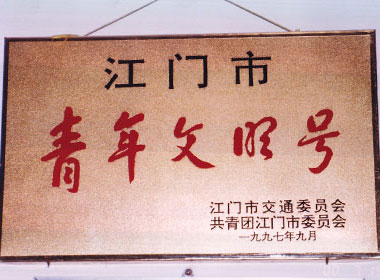 江门市
青年文明号
江门市交通委员会
共青团江门市委员会
一九九七年九月